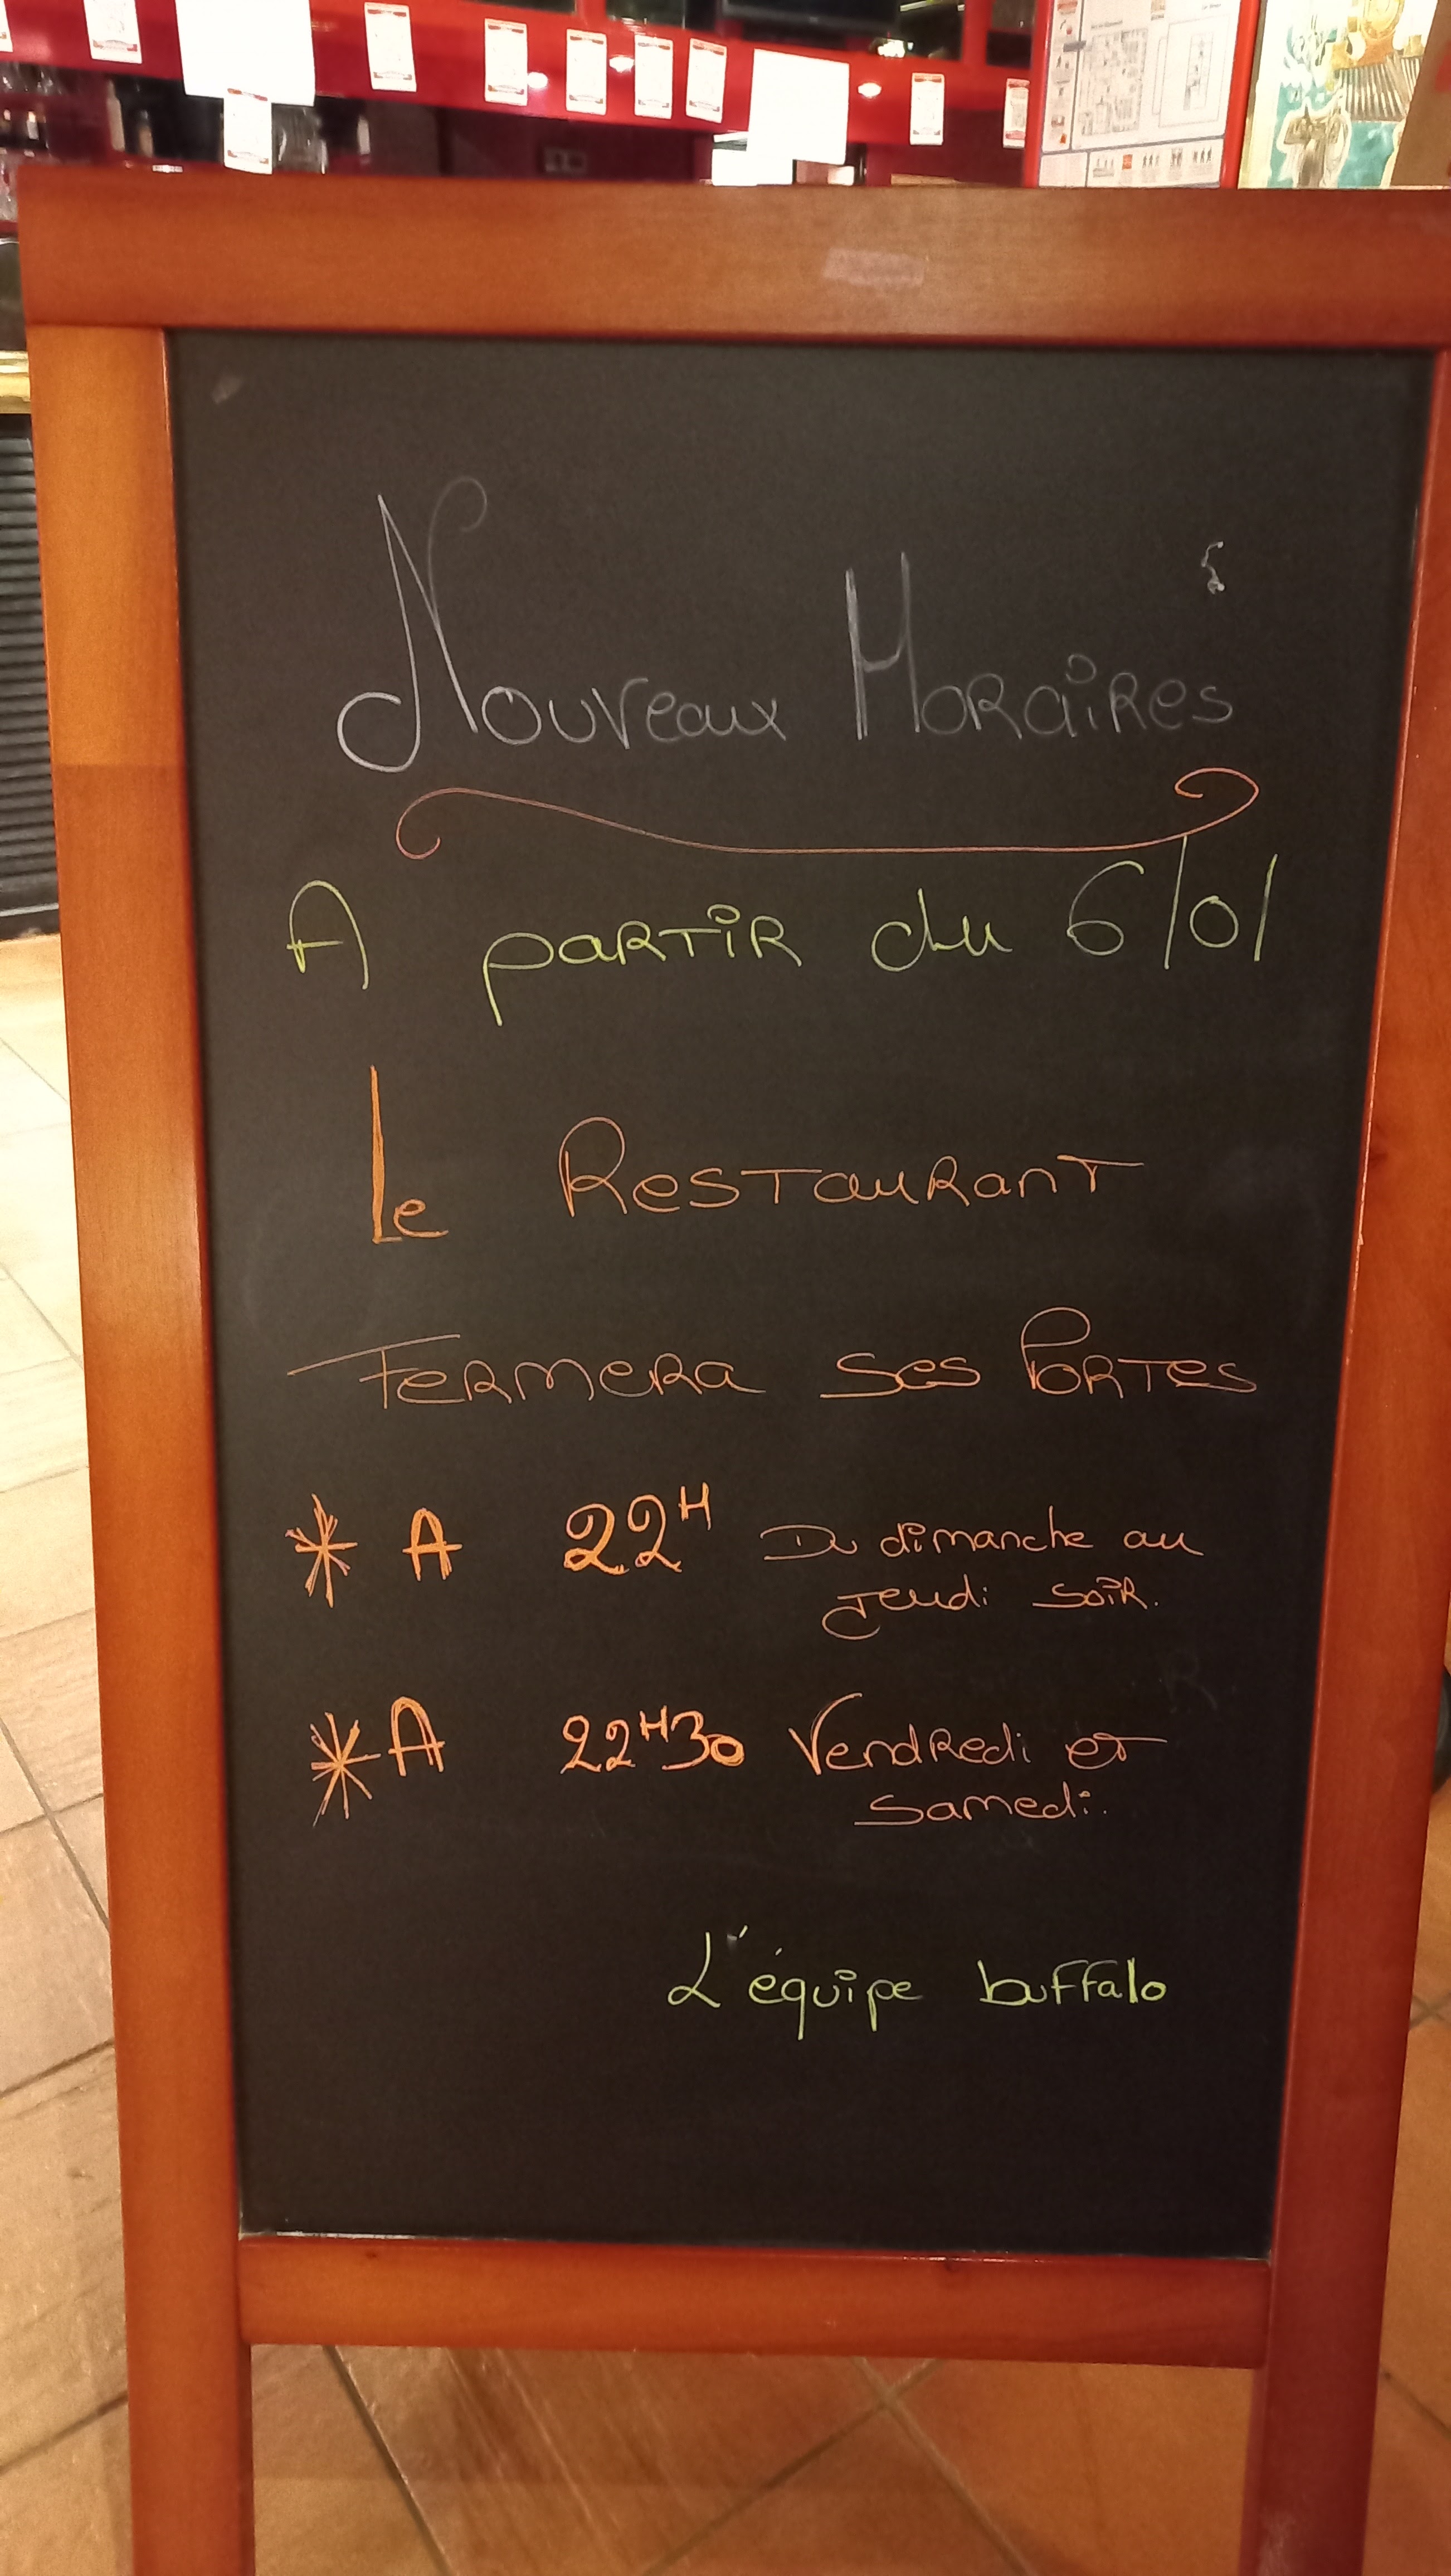 Nouveaux Horaires
A partir du 6/01
Le Restaurant
Fermera ses Portes
* A 22H Du dimanche au
jeudi soir.
* A 22H30 Vendredi et
samedi.
L'équipe buffalo